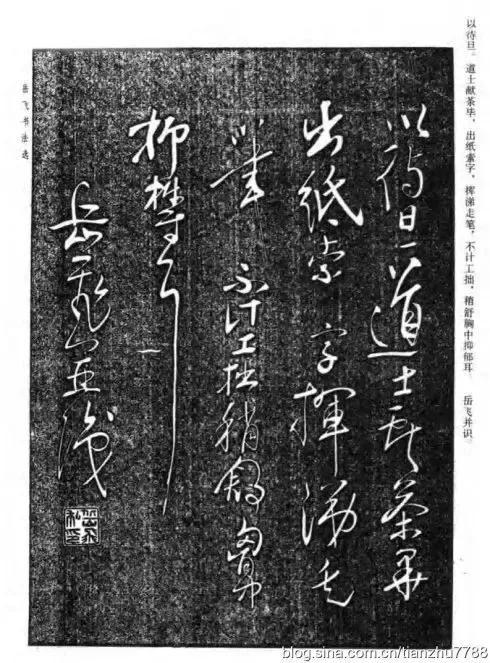 以待旦。道士献茶毕，出纸索字，挥涕走笔，不计工拙，稍舒胸中抑郁耳 岳飞并识
以待旦道士献茶畢
出紙索字揮涕走
筆不計工拙稍舒胸中
抑鬱耳
岳飛並識
岳飞书法选
blog.sina.com.cn/tianzhu7788